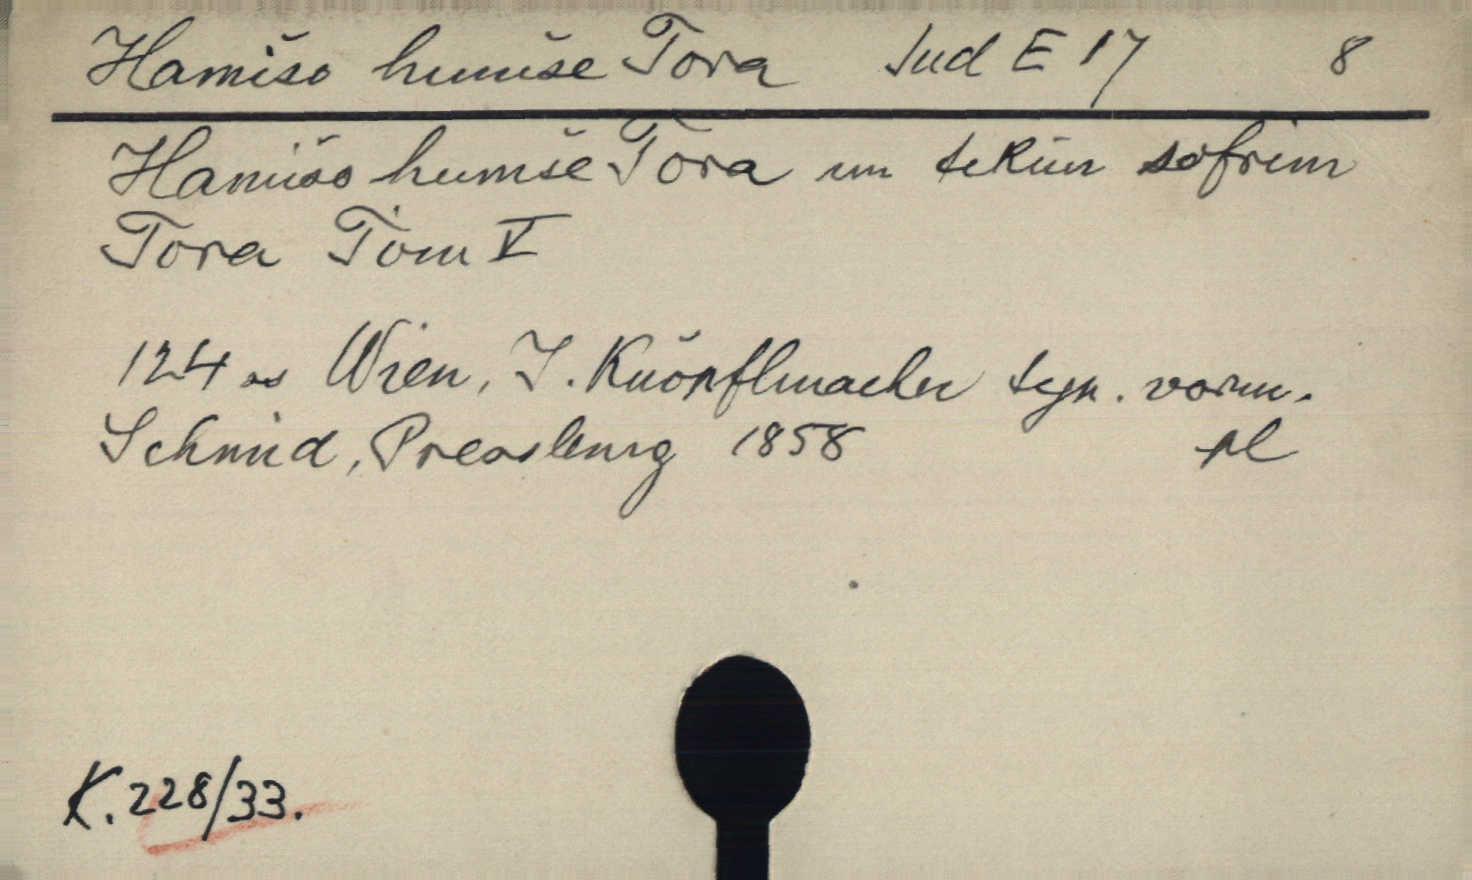 Hamišo humše Tora Jud E 17 8
Hamišo humše Tora im tekun sofrim
Tora Tom V
124 s Wien, J. Knöpflmacher typ. vorm.
Schmid, Pressburg 1858 pl
K. 228/33.